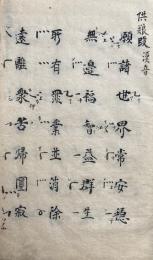 供 段 漢音
願諸世界常安穏
無邊福智益群生
所有罪業並消除
遠離衆苦歸圓寂